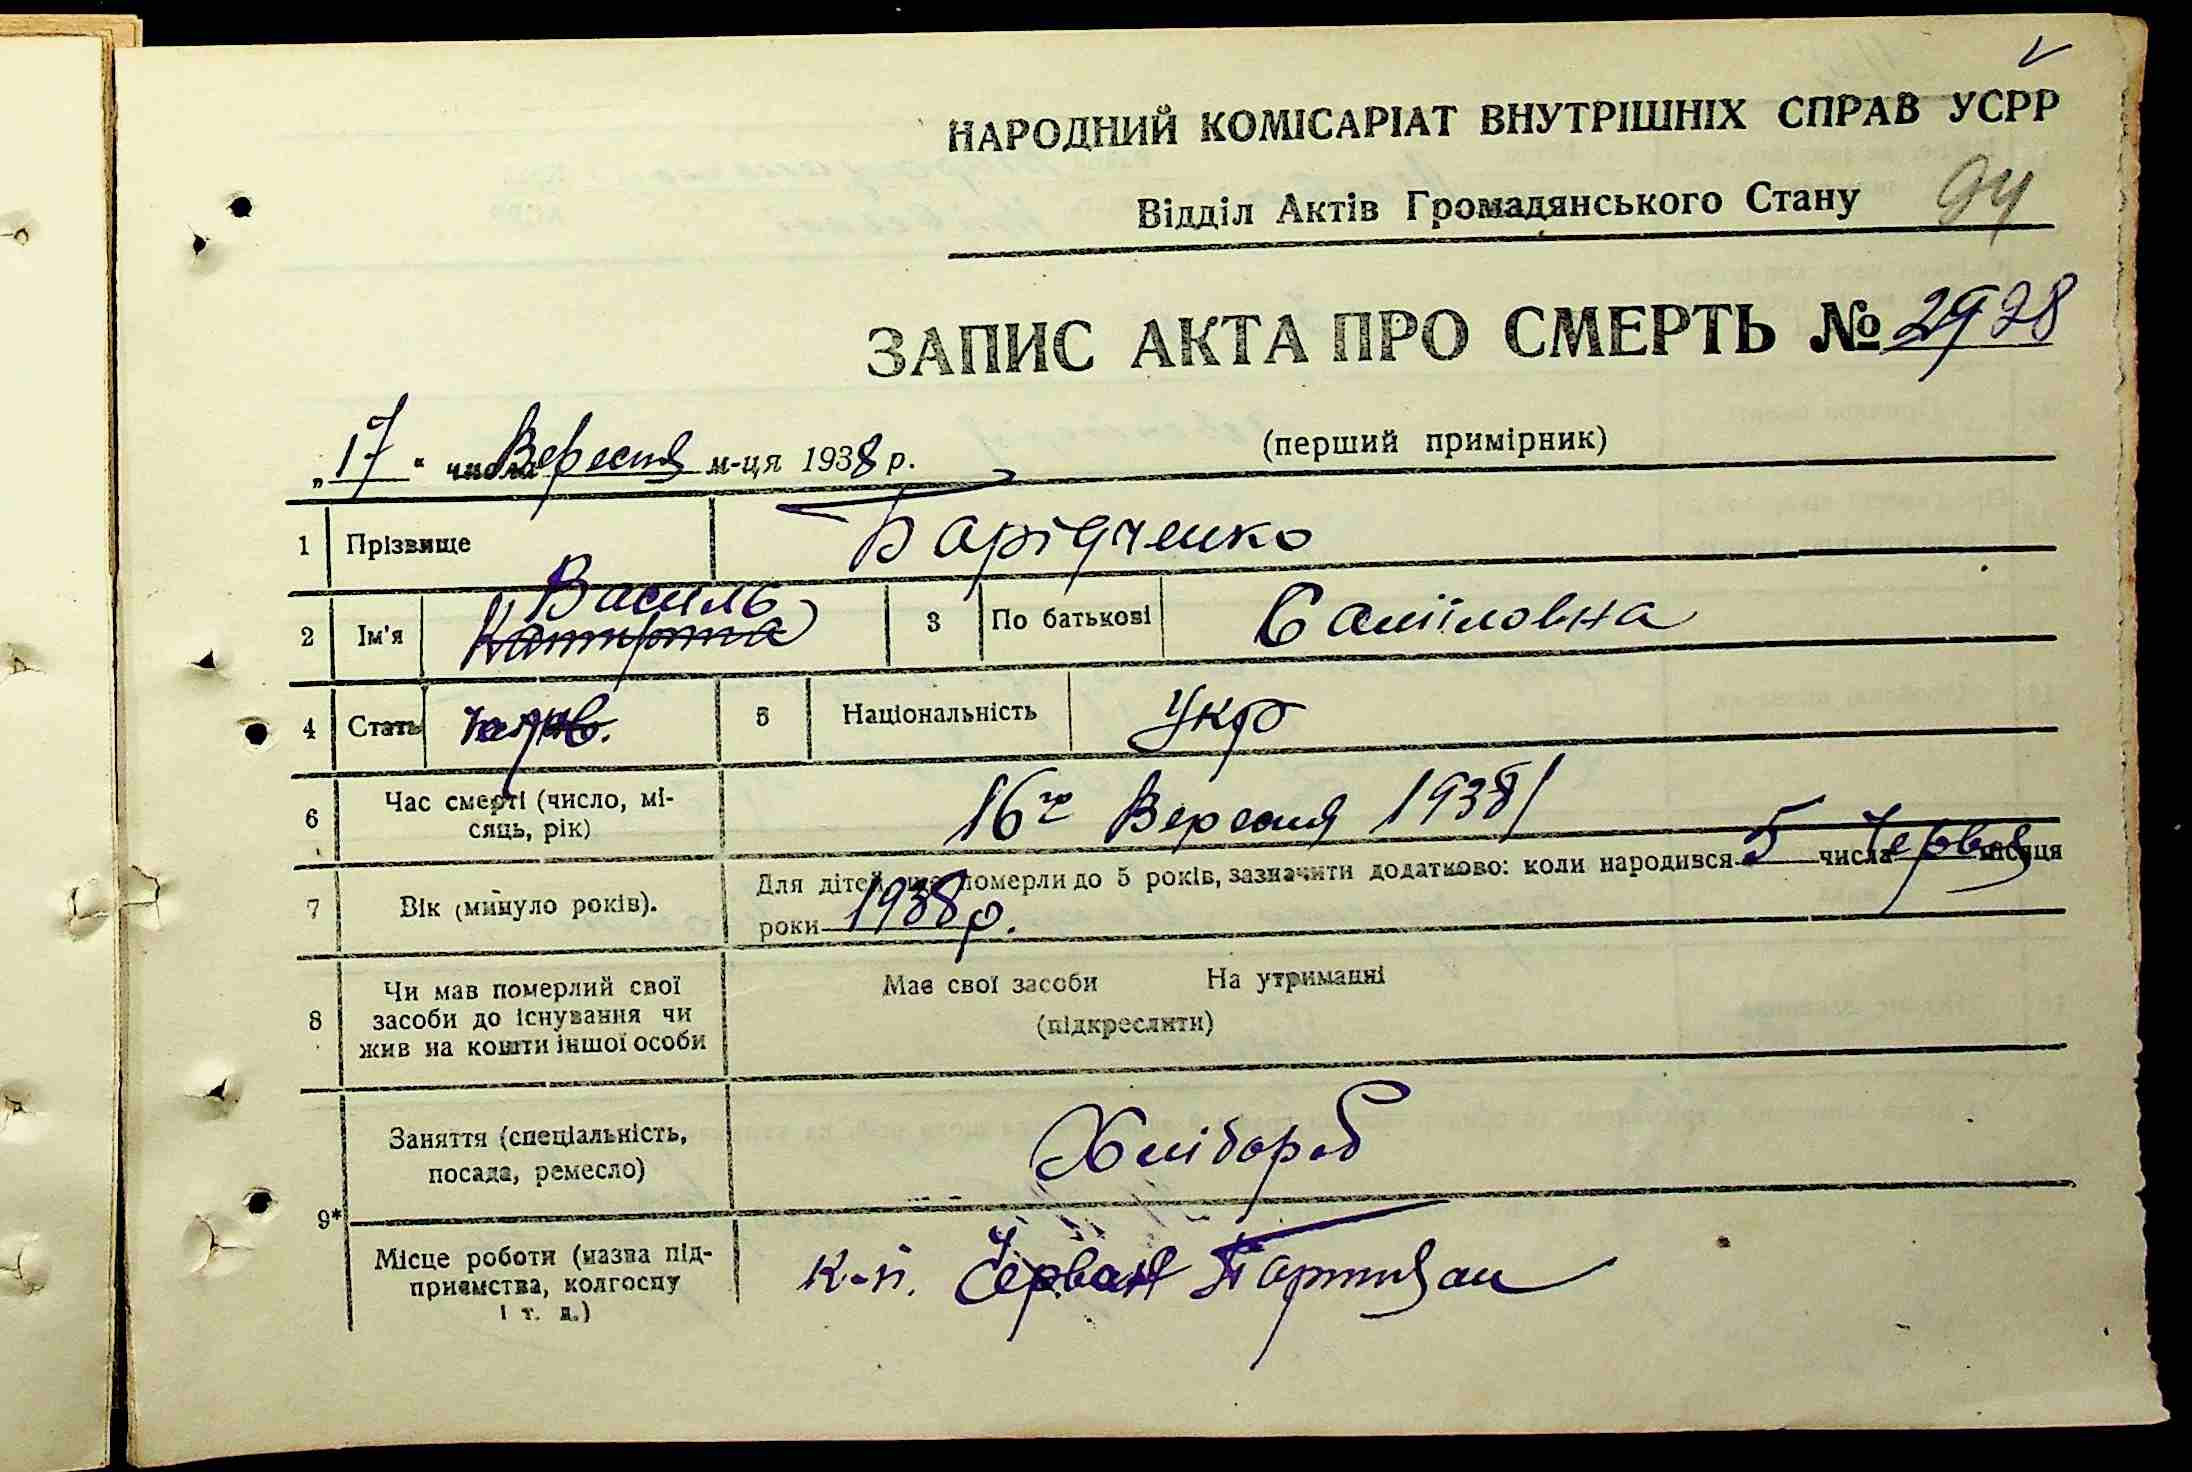 НАРОДНИЙ КОМІСАРІАТ ВНУТРІШНІХ СПРАВ УСРР
Відділ Актів Громадянського Стану 94
ЗАПИС АКТА ПРО СМЕРТЬ № 2928
„17“ числа Вересня м-ця 1938 р. (перший примірник)
1 Прізвище Барідченко
Василь
2 Ім'я Катирина 3 По батькові Саміловна
4 Стать 5 Національність Укр
6 Час смерті (число, мі-
сяць, рік) 16го Вересня 1938
7 Вік (минуло років). Для дітей, що померли до 5 років, зазначити додатково: коли народився 5 числа Червня місяця
роки 1938 р.
8 Чи мав померлий свої
засоби до існування чи
жив на кошти іншої особи
Має свої засоби На утриманні
(підкреслити)
9* Заняття (спеціальність,
посада, ремесло) Хлібороб
Місце роботи (назва під-
приємства, колгоспу
і т. д.) Червон Партизан